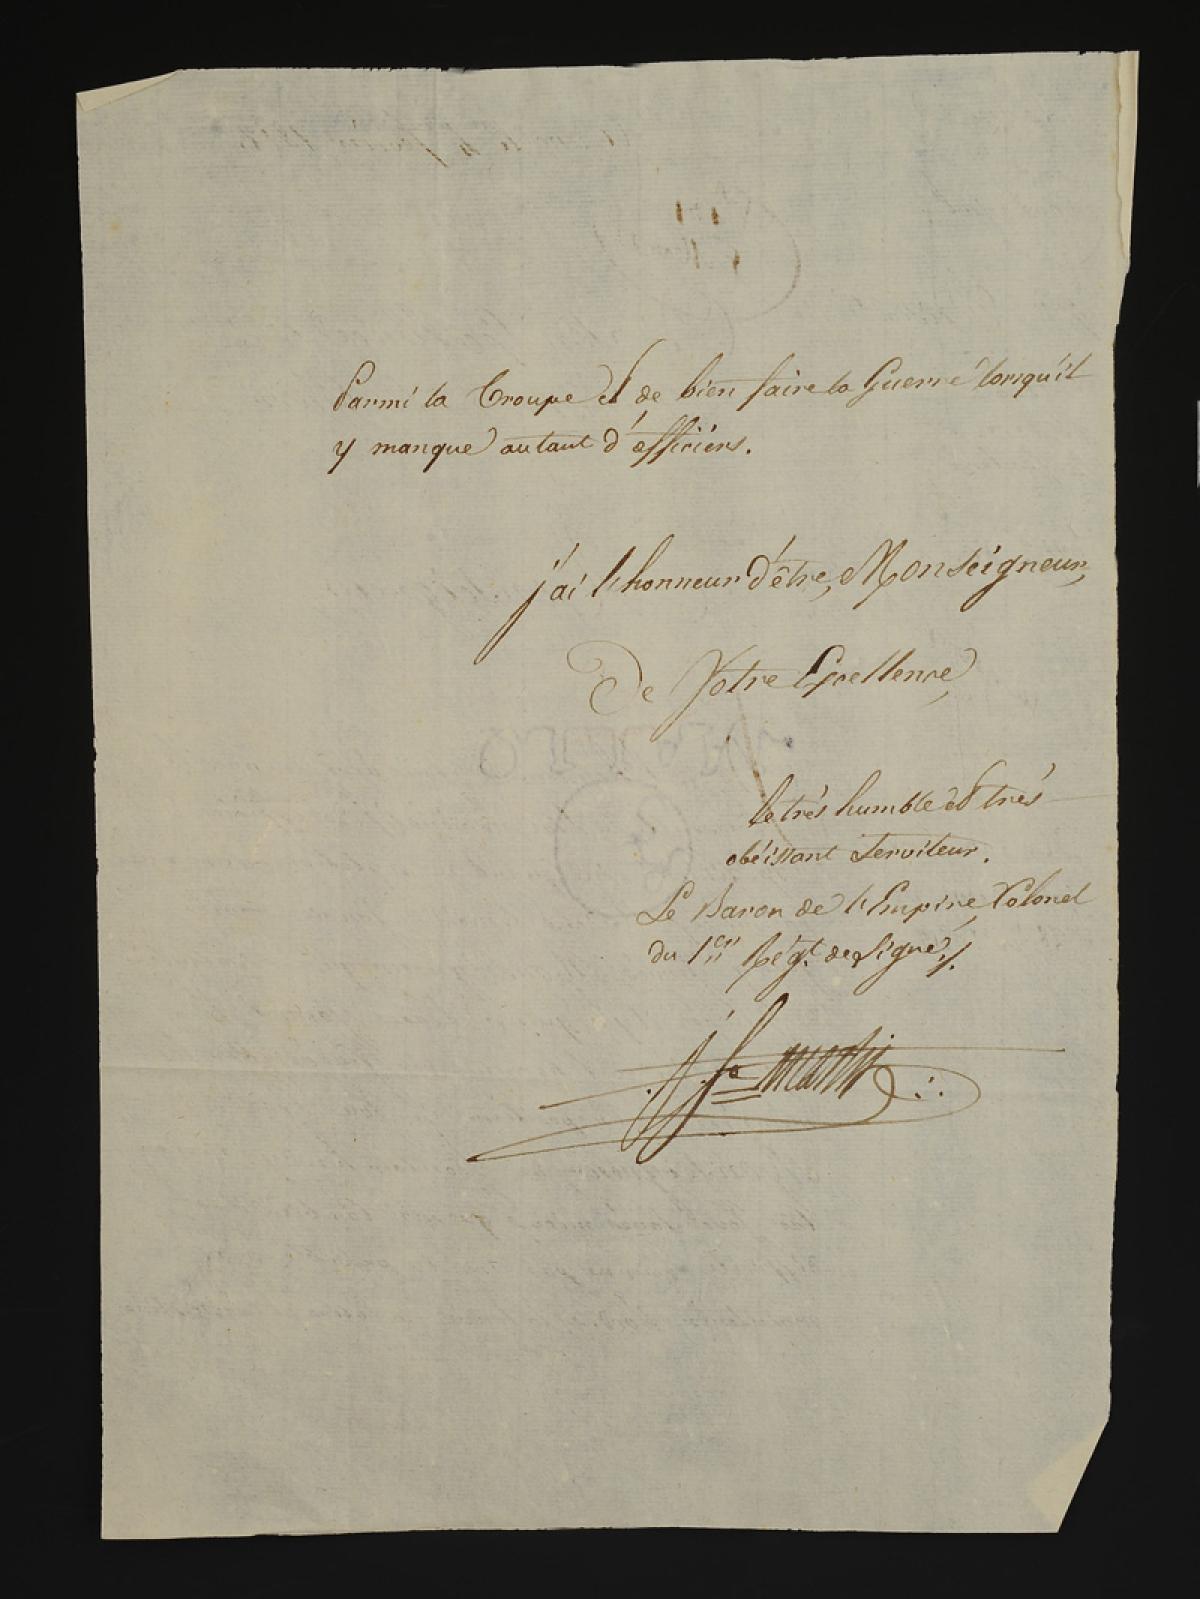 Parmi la Troupe et de bien faire la Guerre lorsqu'il
y manque autant d'officiers.
j'ai l'honneur d'être, Monseigneur,
De Votre Excellence,
le très humble et très
obéissant serviteur.
Le Baron de l'Empire, Colonel
du 1er Régt. de Ligne